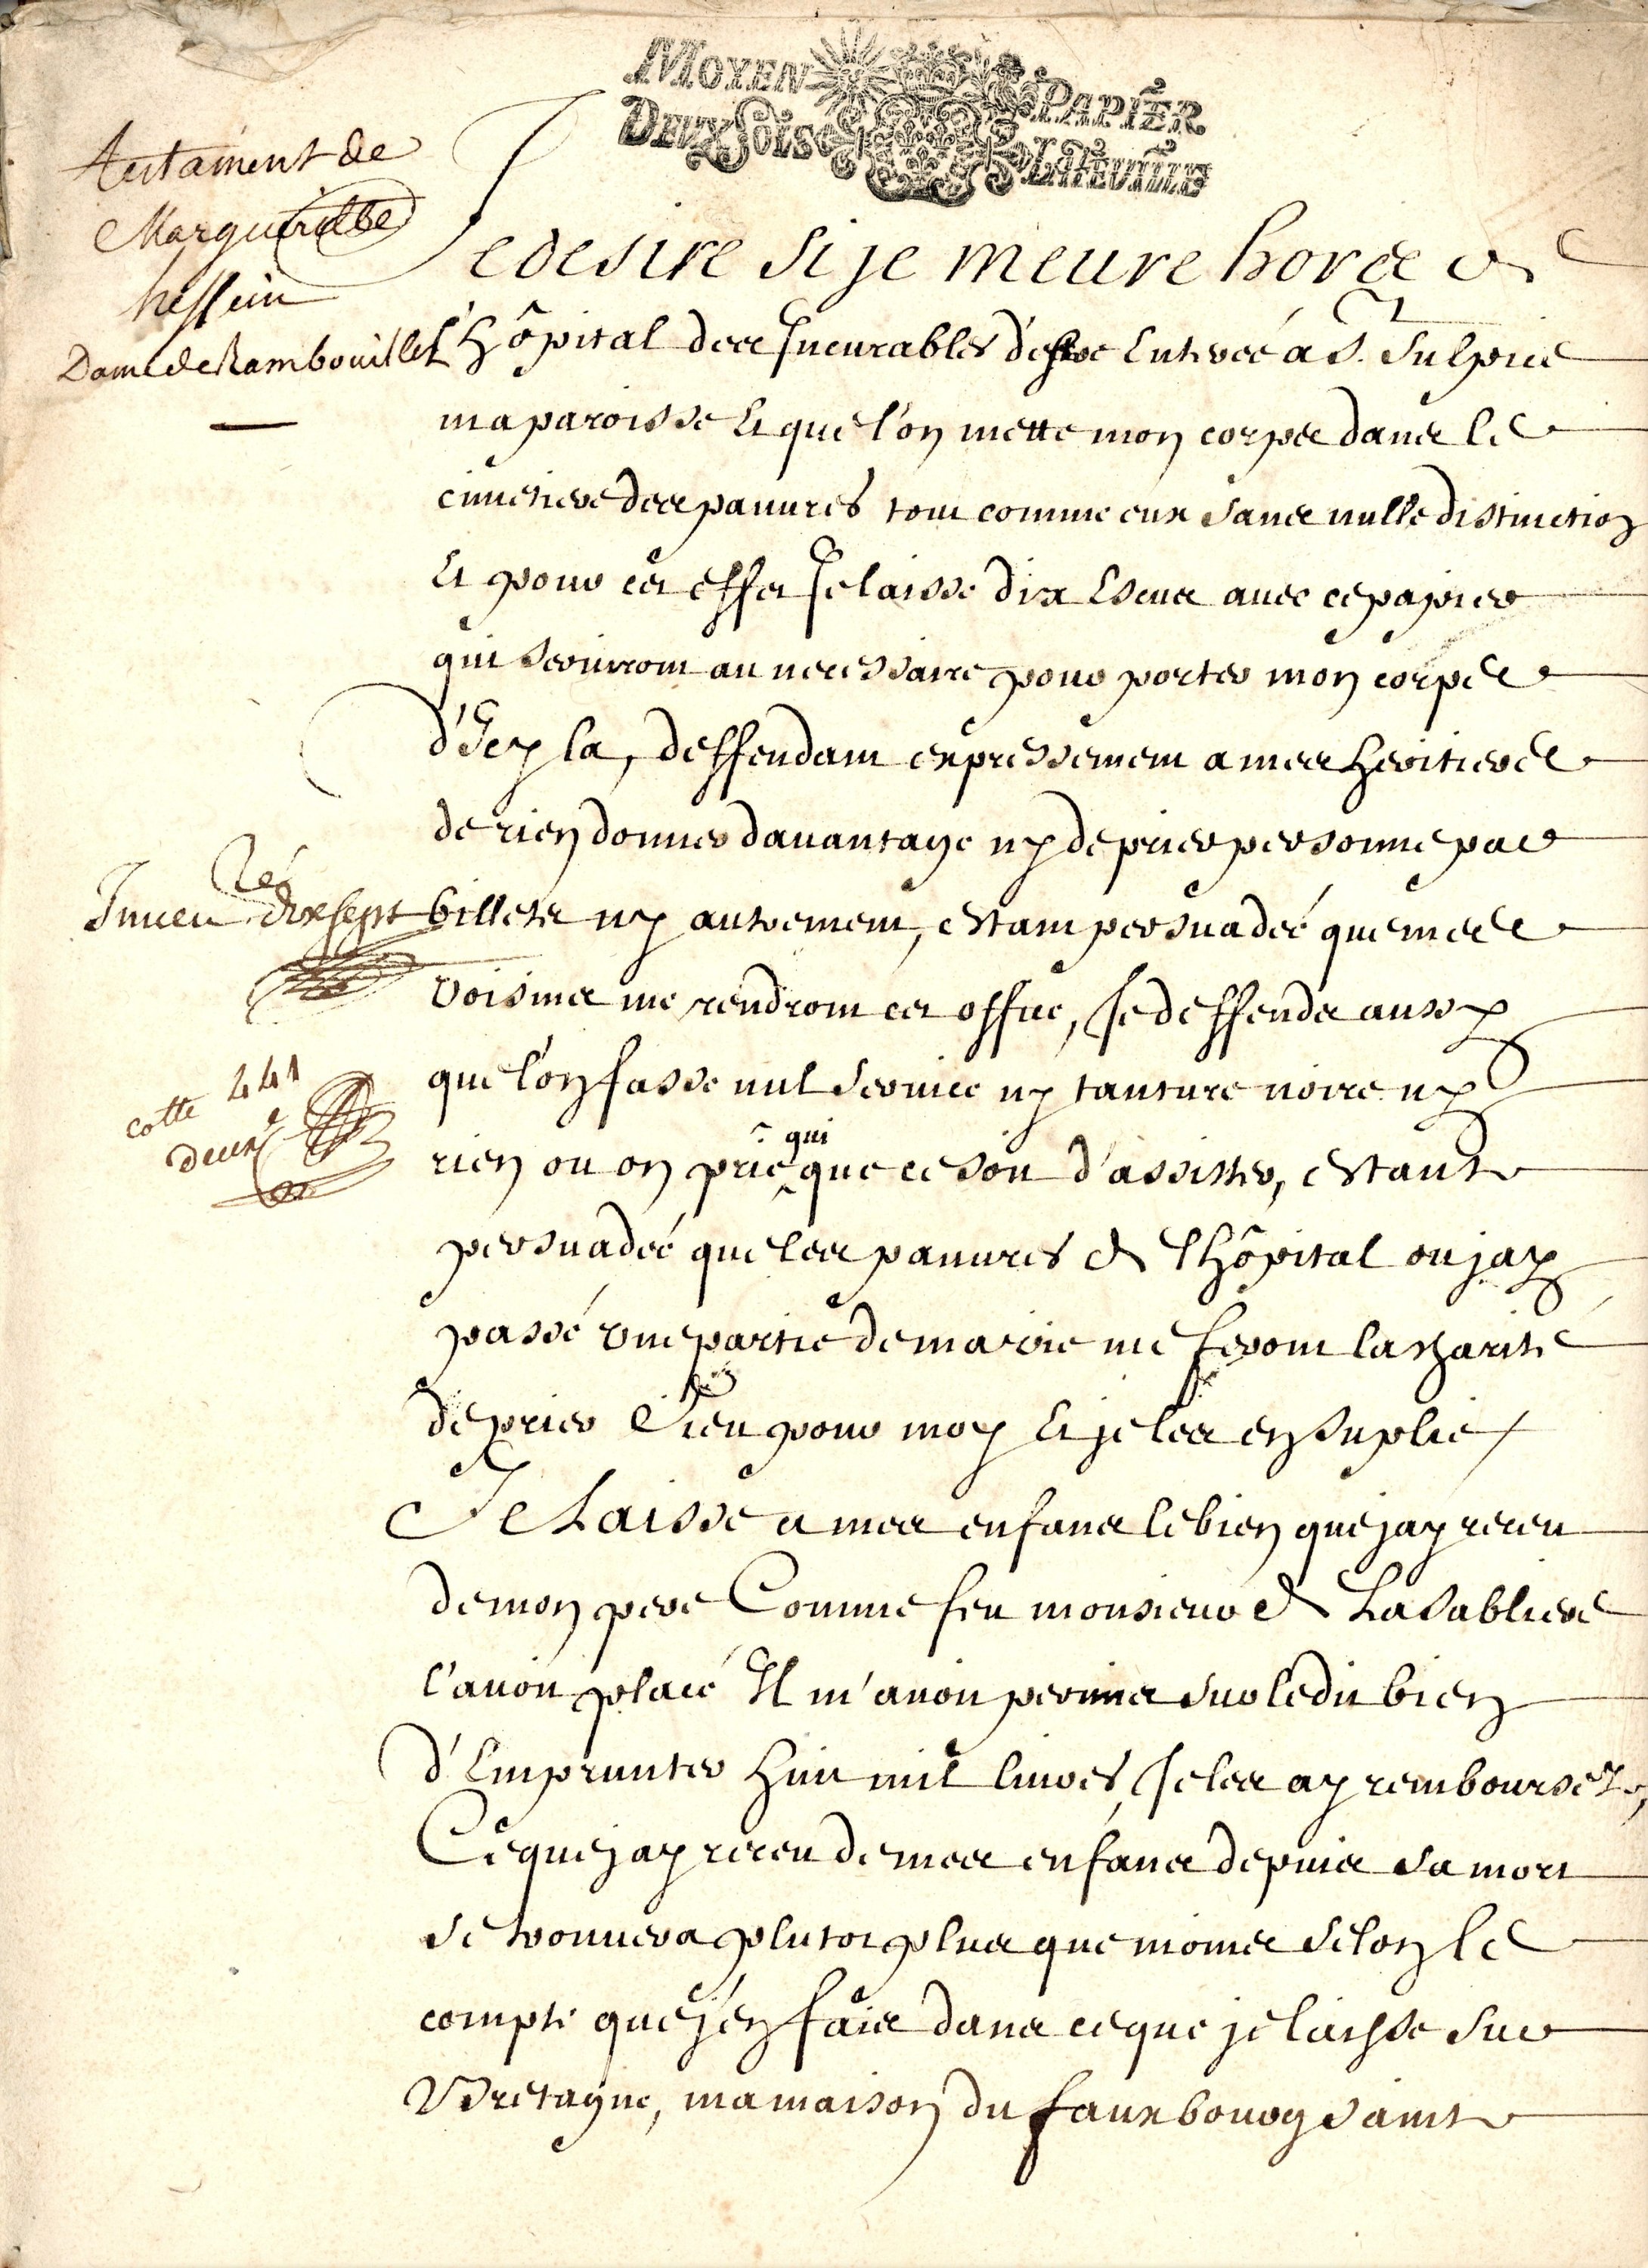 MOYEN PAPIER
DEUX SOLS LA FEUILLE
Testament de
Margueritte
hessein
Dame de Rambouillet
Je desire si je meure hors de
l'hôpital des Incurables d'estre Enterrée a S. Sulpice
ma paroisse Et que l'on mette mon corps dans le
cimetiere des pauures tout comme eux sans nulle distinction
Et pour cet effet Je laisse dix Escus auec ce papier
qui seruiront au necessaire pour porter mon corps
d'Icy la, deffendant expressement a mes heritiers
de rien donner dauantage ny de prier personne par
billets ny autrement, estant persuadée que mes
voisins me rendront cet office, Je deffends aussy
que l'on fasse nul seruice ny tanture noire ny
rien ou on prie qui que ce soit d'assister, estant
persuadée que les pauures de l'hôpital ou jay
passé vne partie de ma vie me feront la charité
de prier Dieu pour moy Et je les en suplie /
Je Laisse a mes enfans le bien que jay receu
de mon pere Comme feu monsieur de La Sabliere
l'auoit placé Il m'auoit permis sur ledit bien
d'Emprunter huit mil liures, Je les ay remboursez,
Ce que jay receu de mes enfans depuis sa mort
se trouuera plutot plus que moins selon le
compte que j'en fais dans ce que je laisse sur
Bretagne, ma maison du fauxbourg saint
Inuen.ré dix sept
cotte 441
deux.e